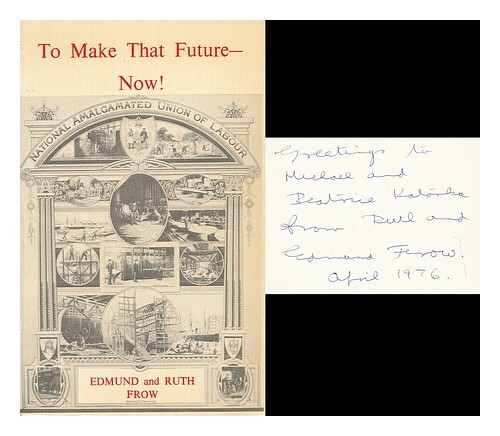 To Make That Future—
Now!
NATIONAL AMALGAMATED UNION OF LABOUR
EDMUND and RUTH
FROW
Greetings to
Michael and
Beatrice
from Ruth and
Edmund Frow.
April 1976.